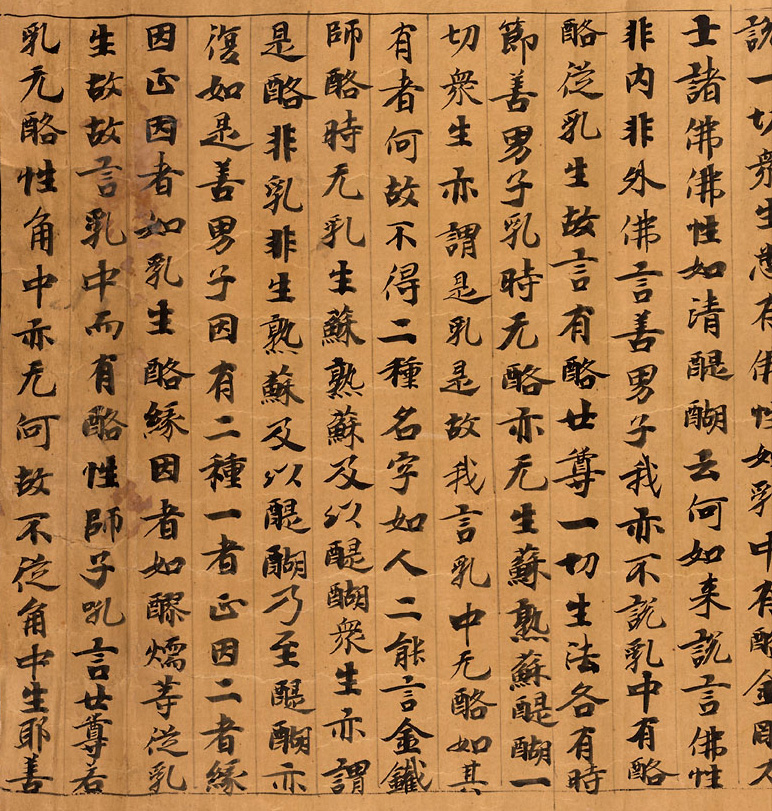 說一切衆生悉有佛性如乳中有酪金剛力
士諸佛佛性如清醍醐云何如来說言佛性
非内非外佛言善男子我亦不說乳中有酪
酪從乳生故言有酪世尊一切生法各有時
節善男子乳時无酪亦无生蘇熟蘇醍醐一
切衆生亦謂是乳是故我言乳中无酪如其
有者何故不得二種名字如人二能言金鐵
師酪時无乳生蘇熟蘇及以醍醐衆生亦謂
是酪非乳非生熟蘇及以醍醐乃至醍醐亦
復如是善男子因有二種一者正因二者緣
因正因者如乳生酪緣因者如醪煗等從乳
生故故言乳中而有酪性師子吼言世尊若
乳无酪性角中亦无何故不從角中生耶善